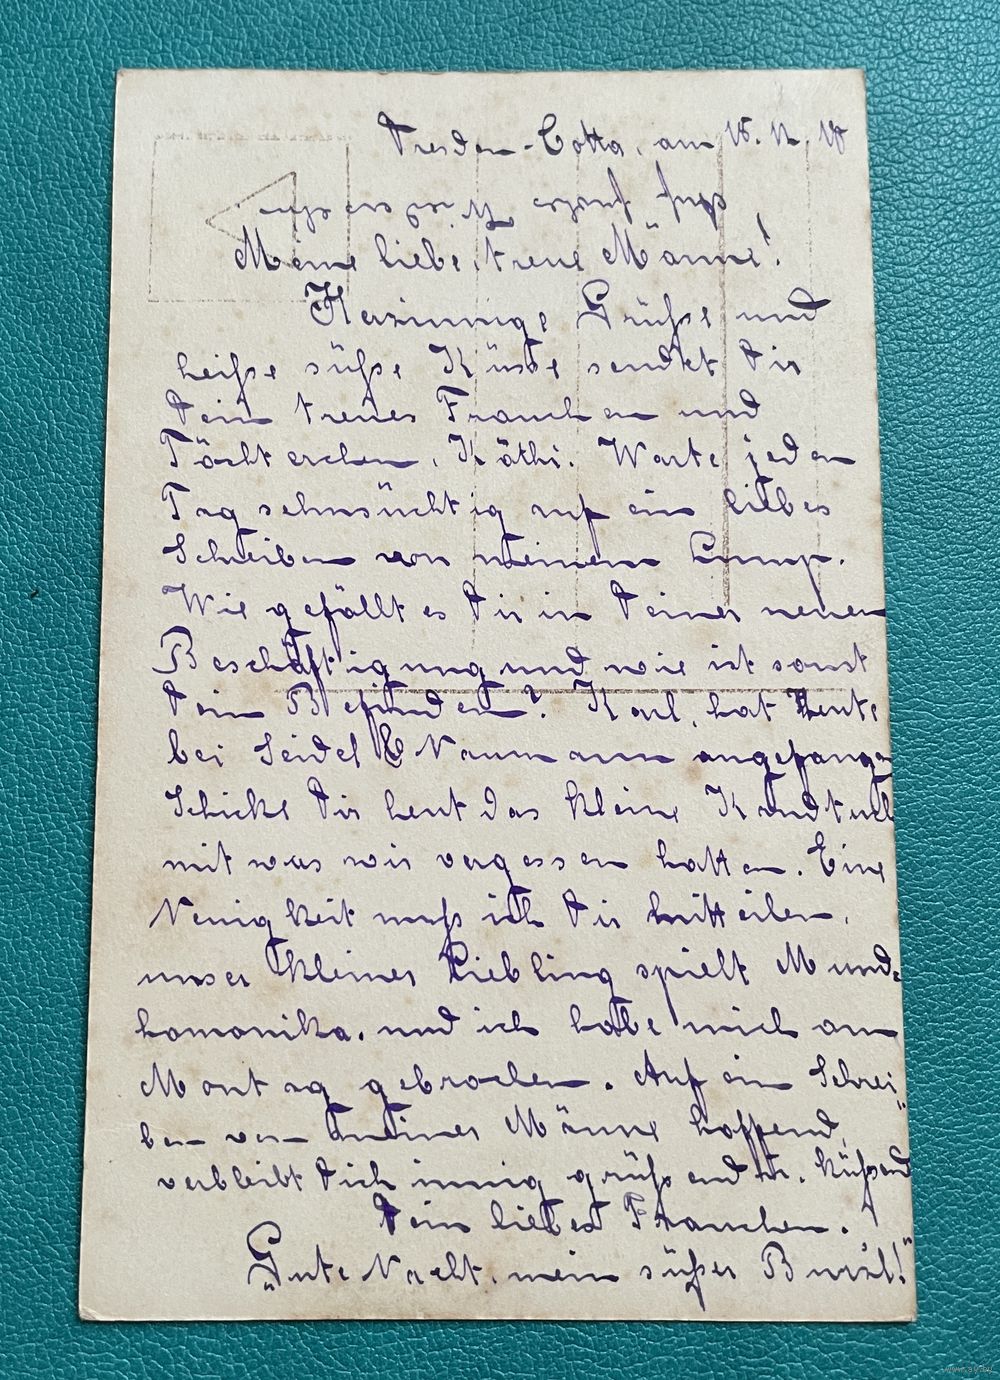 Dresden-Cotta, am 15. 12. 17
auf
Meine liebe, treue Männe!
Herzinnige Grüße und
heiße süße Küsse sendet Dir
Dein treues Frauchen und
Töchterchen, Käthi. Warte jeden
Tag sehnsüchtig auf ein liebes
Schreiben von meinem Lump.
Wie gefällt es Dir in Deiner neuen
Beschäftigung und wie ist sonst
Dein Befinden? Karl, hat heute
bei Seidel & Naumann angefangen
Schicke Dir heut das kleine Handtuch
mit was wir vergessen hatten. Eine
Neuigkeit muß ich Dir mitteilen,
unser kleiner Liebling spielt Mund-
homonika. und ich habe mich am
Montag gebrochen. Auf ein Schrei
ben von meiner Männe hoffend,
verbleibt Dich innig grüßend u. küßend
Dein liebes Frauchen.
"Gute Nacht, mein süßer Burschl!"